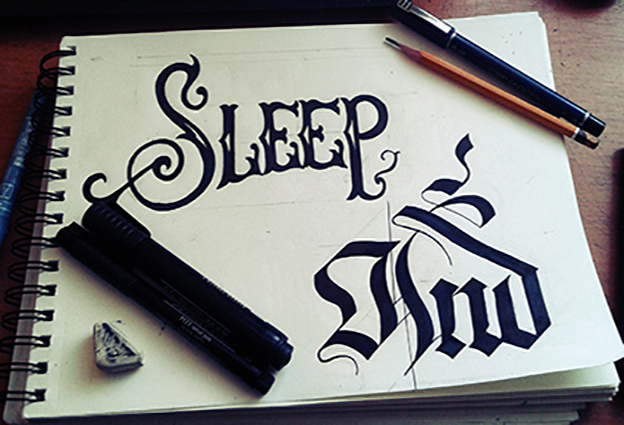 SLEEP
And